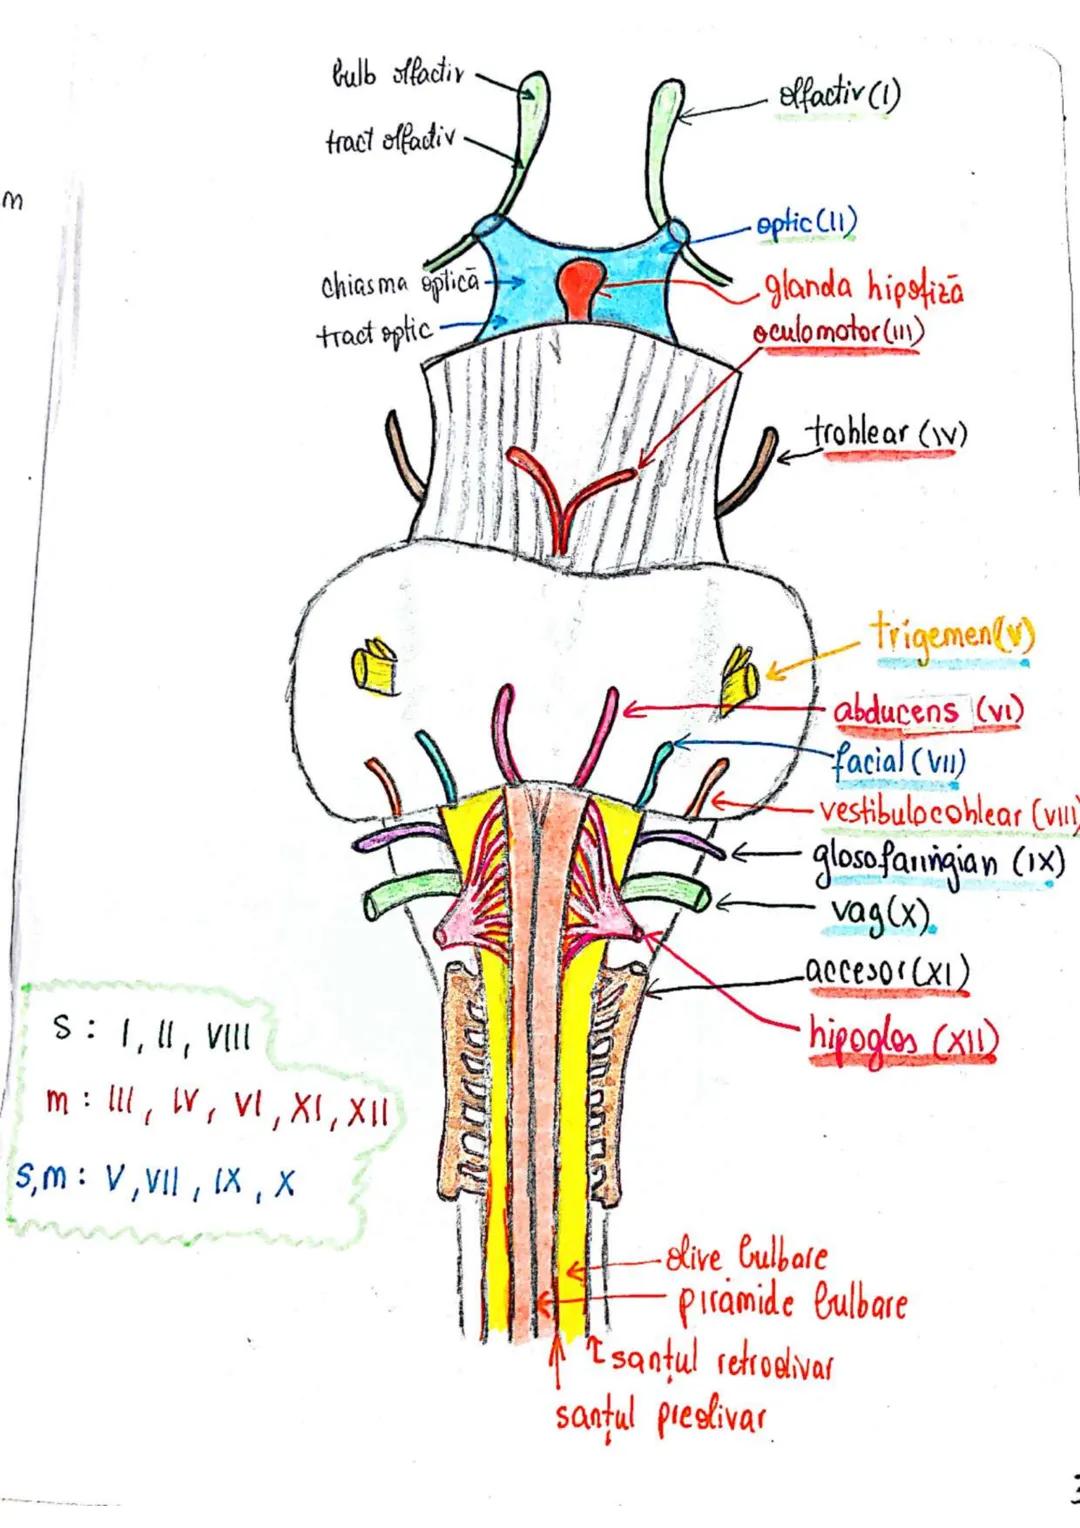 bulb olfactiv
olfactiv (I)
tract olfactiv
m
optic (II)
chiasma optică
glanda hipofiză
tract optic
oculomotor (III)
trohlear (IV)
trigemen (V)
abducens (VI)
facial (VII)
vestibulocohlear (VIII)
glosofaringian (IX)
vag (X)
accesor (XI)
hipoglos (XII)
S : I, II, VIII
m : III, IV, VI, XI, XII
S,m : V, VII, IX, X
olive bulbare
piramide bulbare
șanțul retroolivar
șanțul preolivar
3